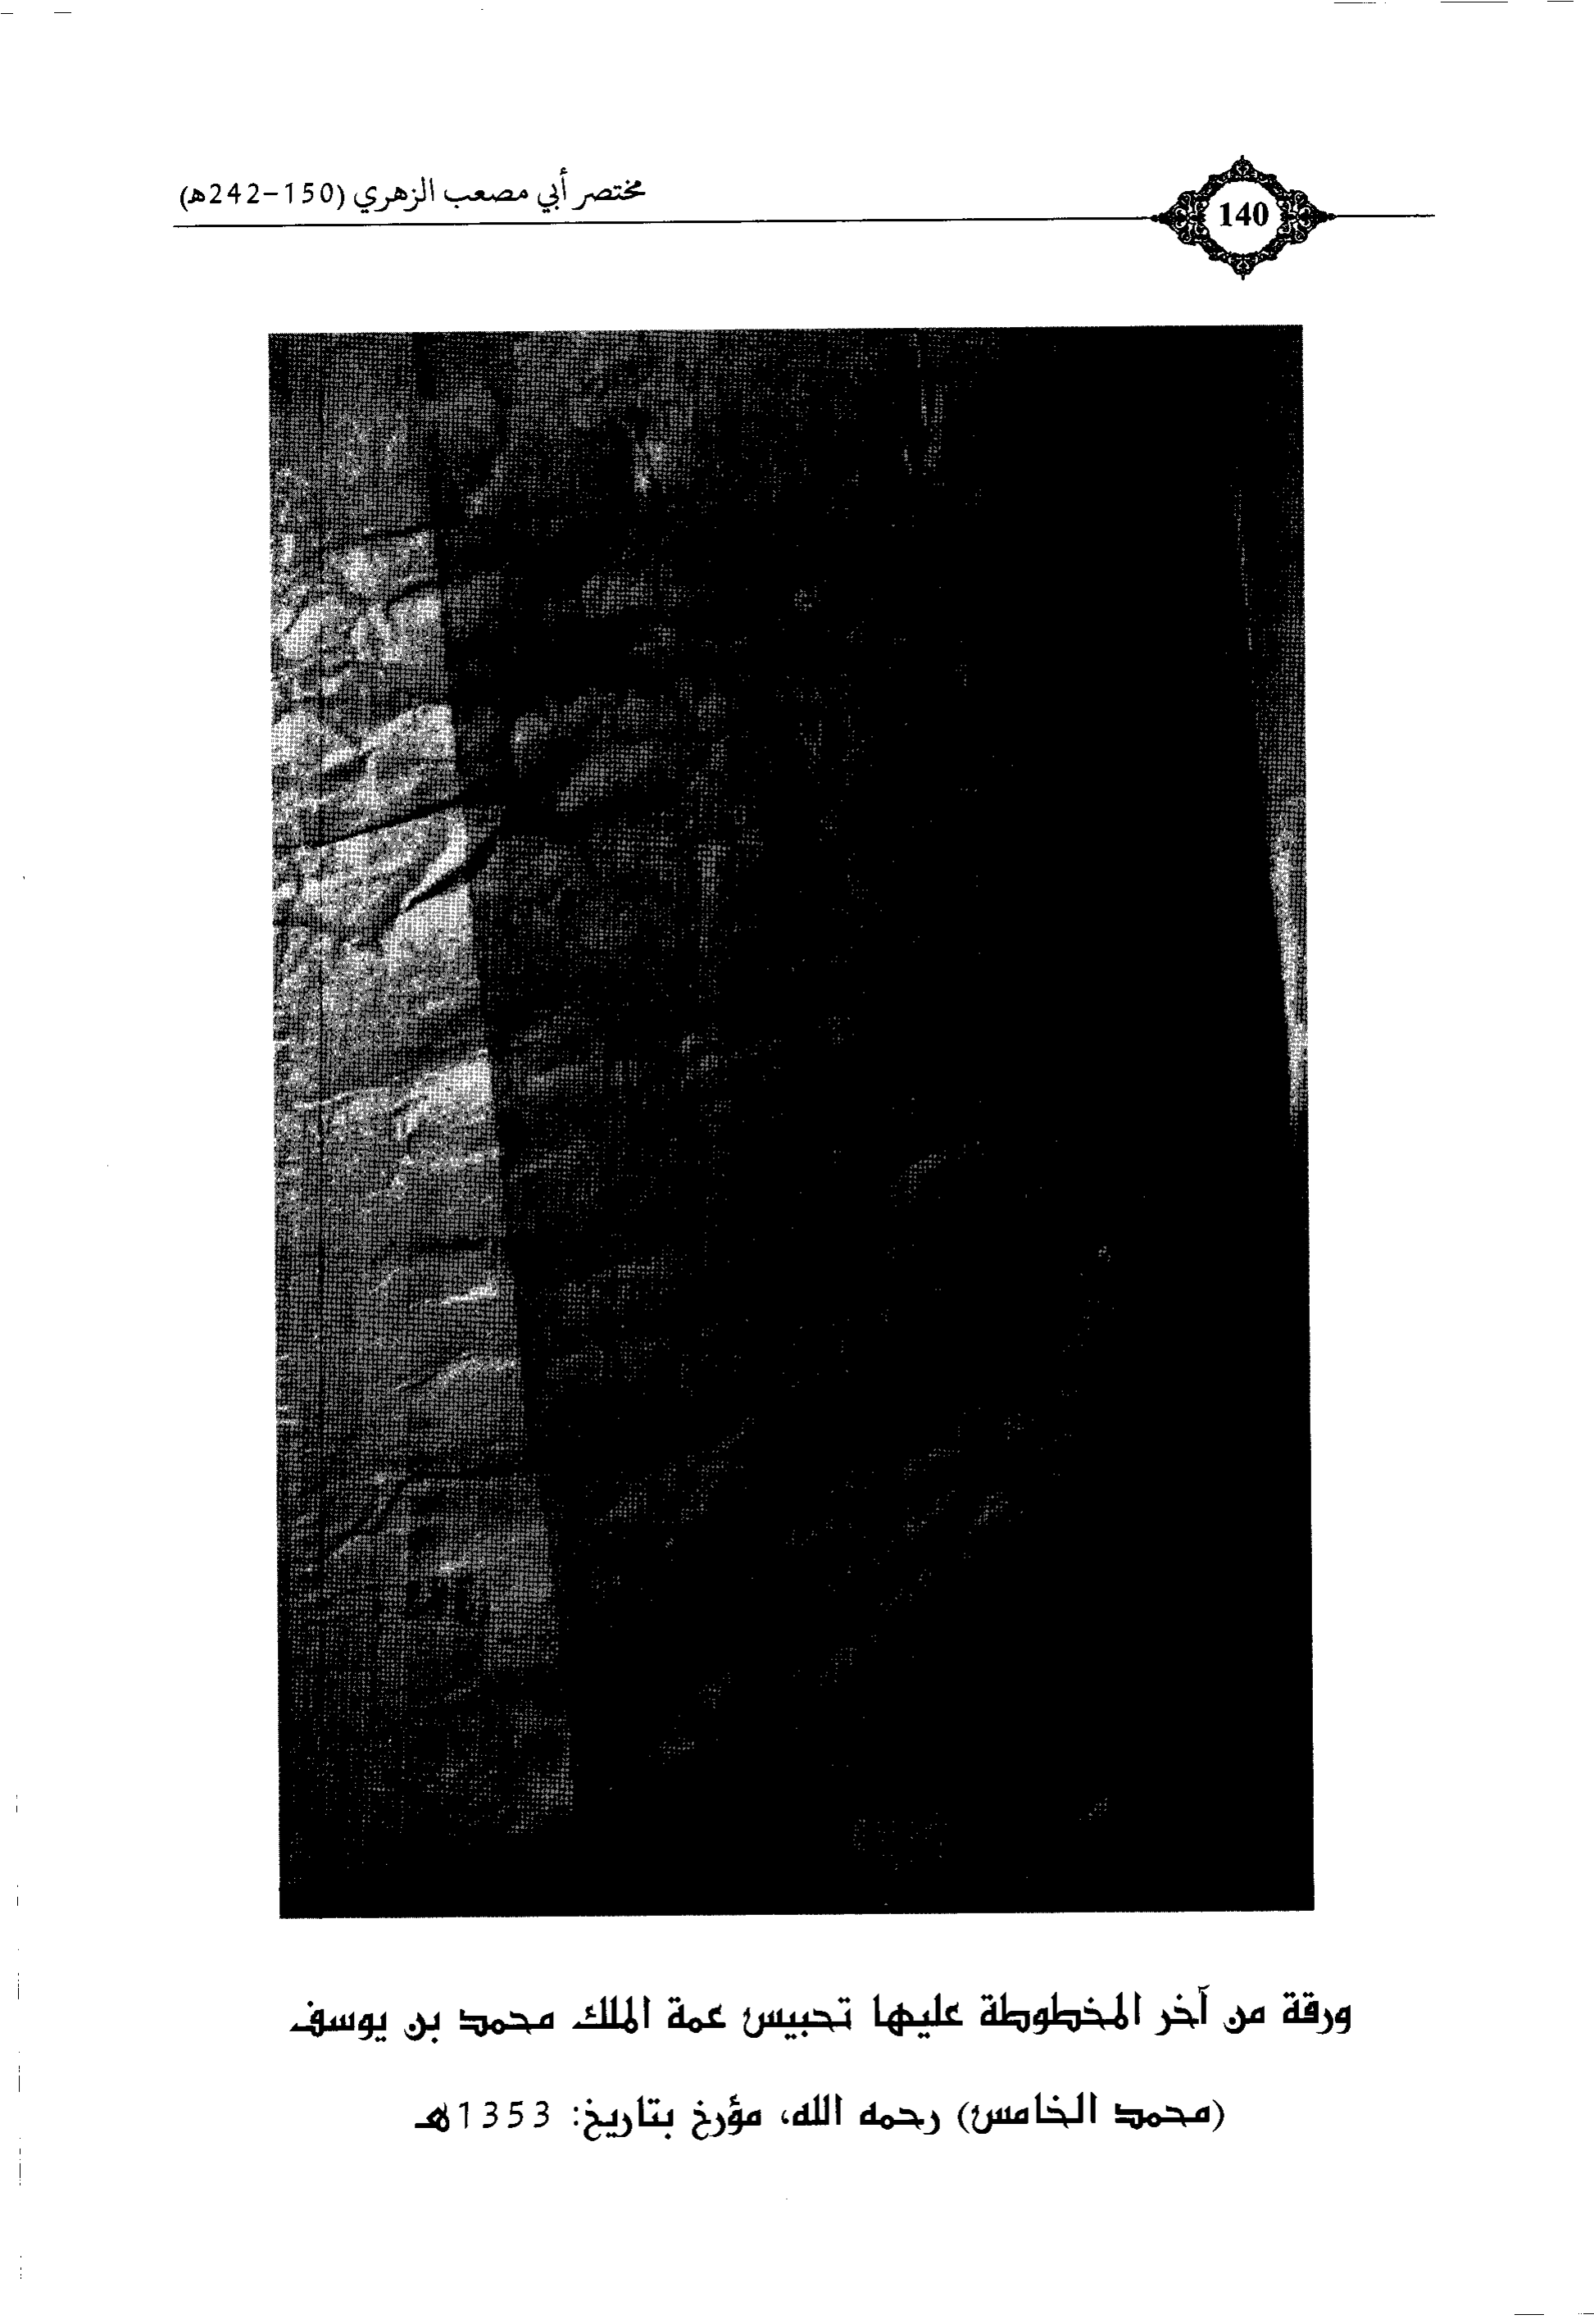 مختصر أبي مصعب الزهري (150-242هـ)
140
ورقة من آخر المخطوطة عليها تحبيس عمة الملك محمد بن يوسف
(محمد الخامس) رحمه الله، مؤرخ بتاريخ: 1353هـ